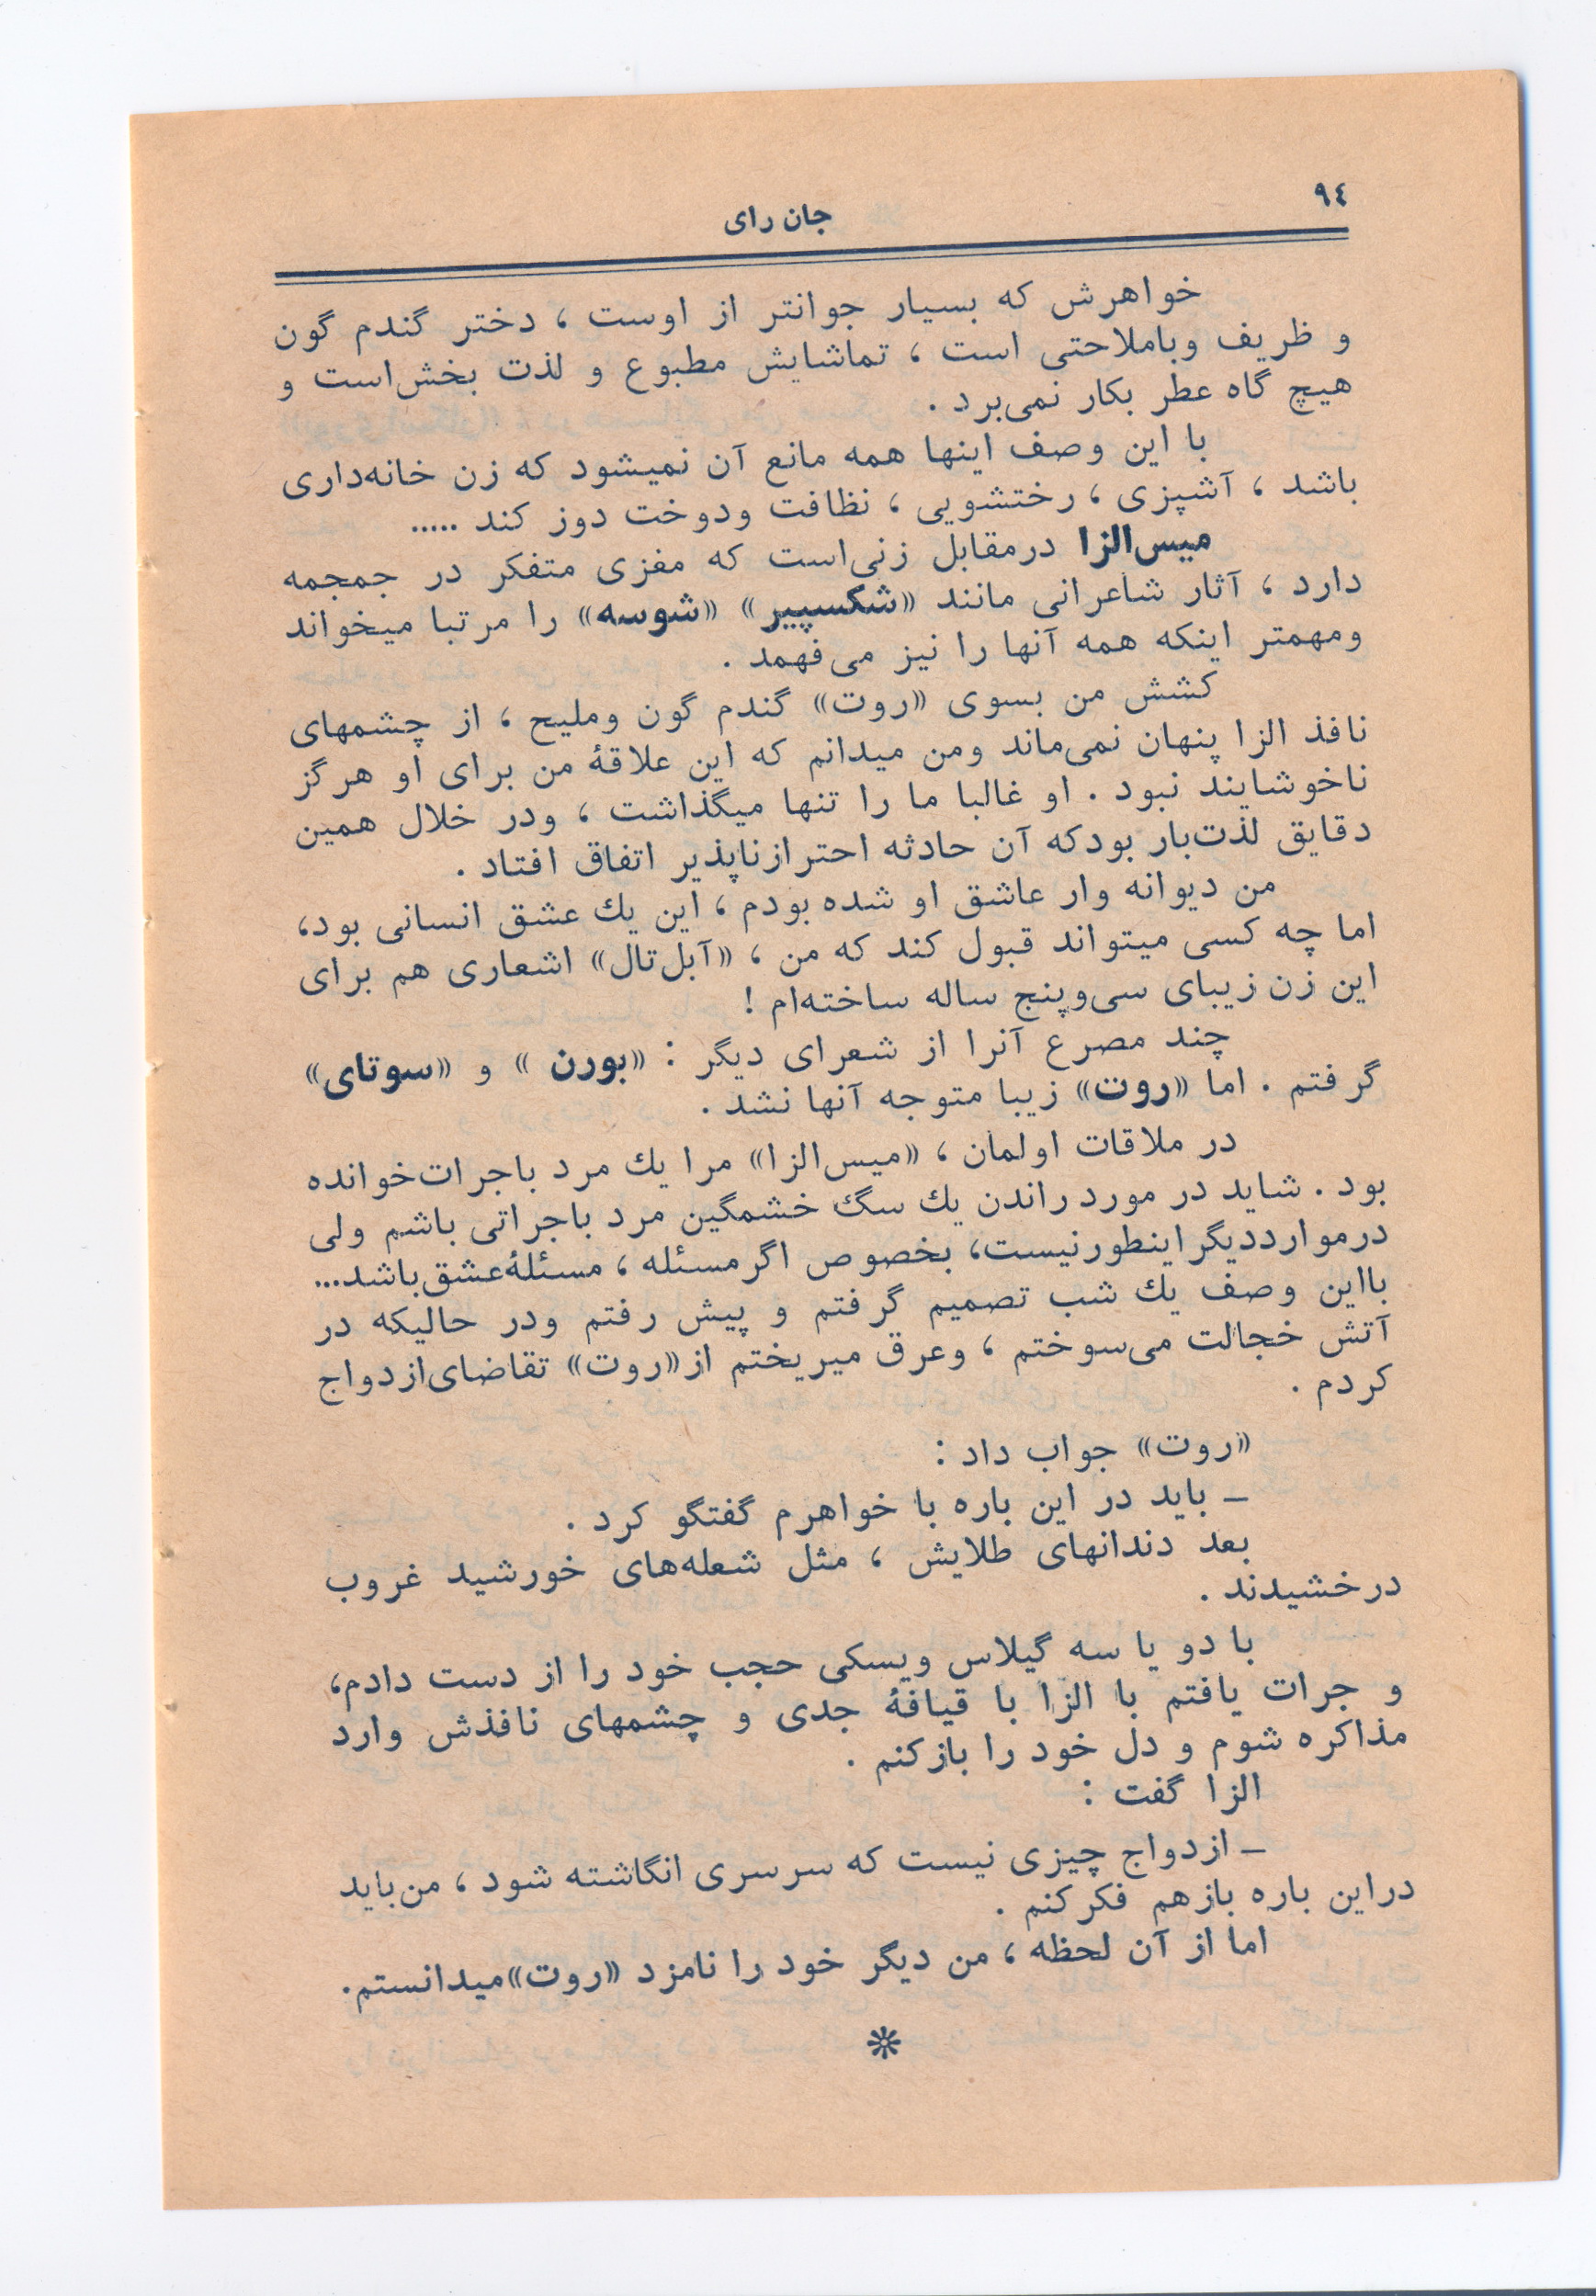 ٩٤
جان رای
خواهرش که بسیار جوانتر از اوست ، دختر گندم گون
و ظریف وباملاحتی است ، تماشایش مطبوع و لذت بخش‌است و
هیچ گاه عطر بکار نمی‌برد .
با این وصف اینها همه مانع آن نمیشود که زن خانه‌داری
باشد ، آشپزی ، رختشویی ، نظافت ودوخت دوز کند .....
میس‌الزا درمقابل زنی‌است که مغزی متفکر در جمجمه
دارد ، آثار شاعرانی مانند «شکسپیر» «شوسه» را مرتبا میخواند
ومهمتر اینکه همه آنها را نیز می‌فهمد .
کشش من بسوی «روت» گندم گون وملیح ، از چشمهای
نافذ الزا پنهان نمی‌ماند ومن میدانم که این علاقهٔ من برای او هرگز
ناخوشایند نبود . او غالبا ما را تنها میگذاشت ، ودر خلال همین
دقایق لذت‌بار بودکه آن حادثه احترازناپذیر اتفاق افتاد .
من دیوانه وار عاشق او شده بودم ، این یك عشق انسانی بود،
اما چه کسی میتواند قبول کند که من ، «آبل‌تال» اشعاری هم برای
این زن زیبای سی‌وپنج ساله ساخته‌ام !
چند مصرع آنرا از شعرای دیگر : «بورن » و «سوتای»
گرفتم . اما «روت» زیبا متوجه آنها نشد .
در ملاقات اولمان ، «میس‌الزا» مرا یك مرد باجرات‌خوانده
بود . شاید در مورد راندن یك سگ خشمگین مرد باجراتی باشم ولی
درمارددیگر اینطورنیست، بخصوص اگرمسئله ، مسئلهٔ‌عشق‌باشد...
بااین وصف یك شب تصمیم گرفتم و پیش رفتم ودر حالیکه در
آتش خجالت می‌سوختم ، وعرق میریختم از«روت» تقاضای‌ازدواج
کردم .
«روت» جواب داد :
ـ باید در این باره با خواهرم گفتگو کرد .
بعد دندانهای طلایش ، مثل شعله‌های خورشید غروب
درخشیدند .
با دو یا سه گیلاس ویسکی حجب خود را از دست دادم،
و جرات یافتم با الزا با قیافهٔ جدی و چشمهای نافذش وارد
مذاکره شوم و دل خود را بازکنم .
الزا گفت :
ـ ازدواج چیزی نیست که سرسری انگاشته شود ، من‌باید
دراین باره بازهم فکرکنم .
اما از آن لحظه ، من دیگر خود را نامزد «روت»میدانستم.